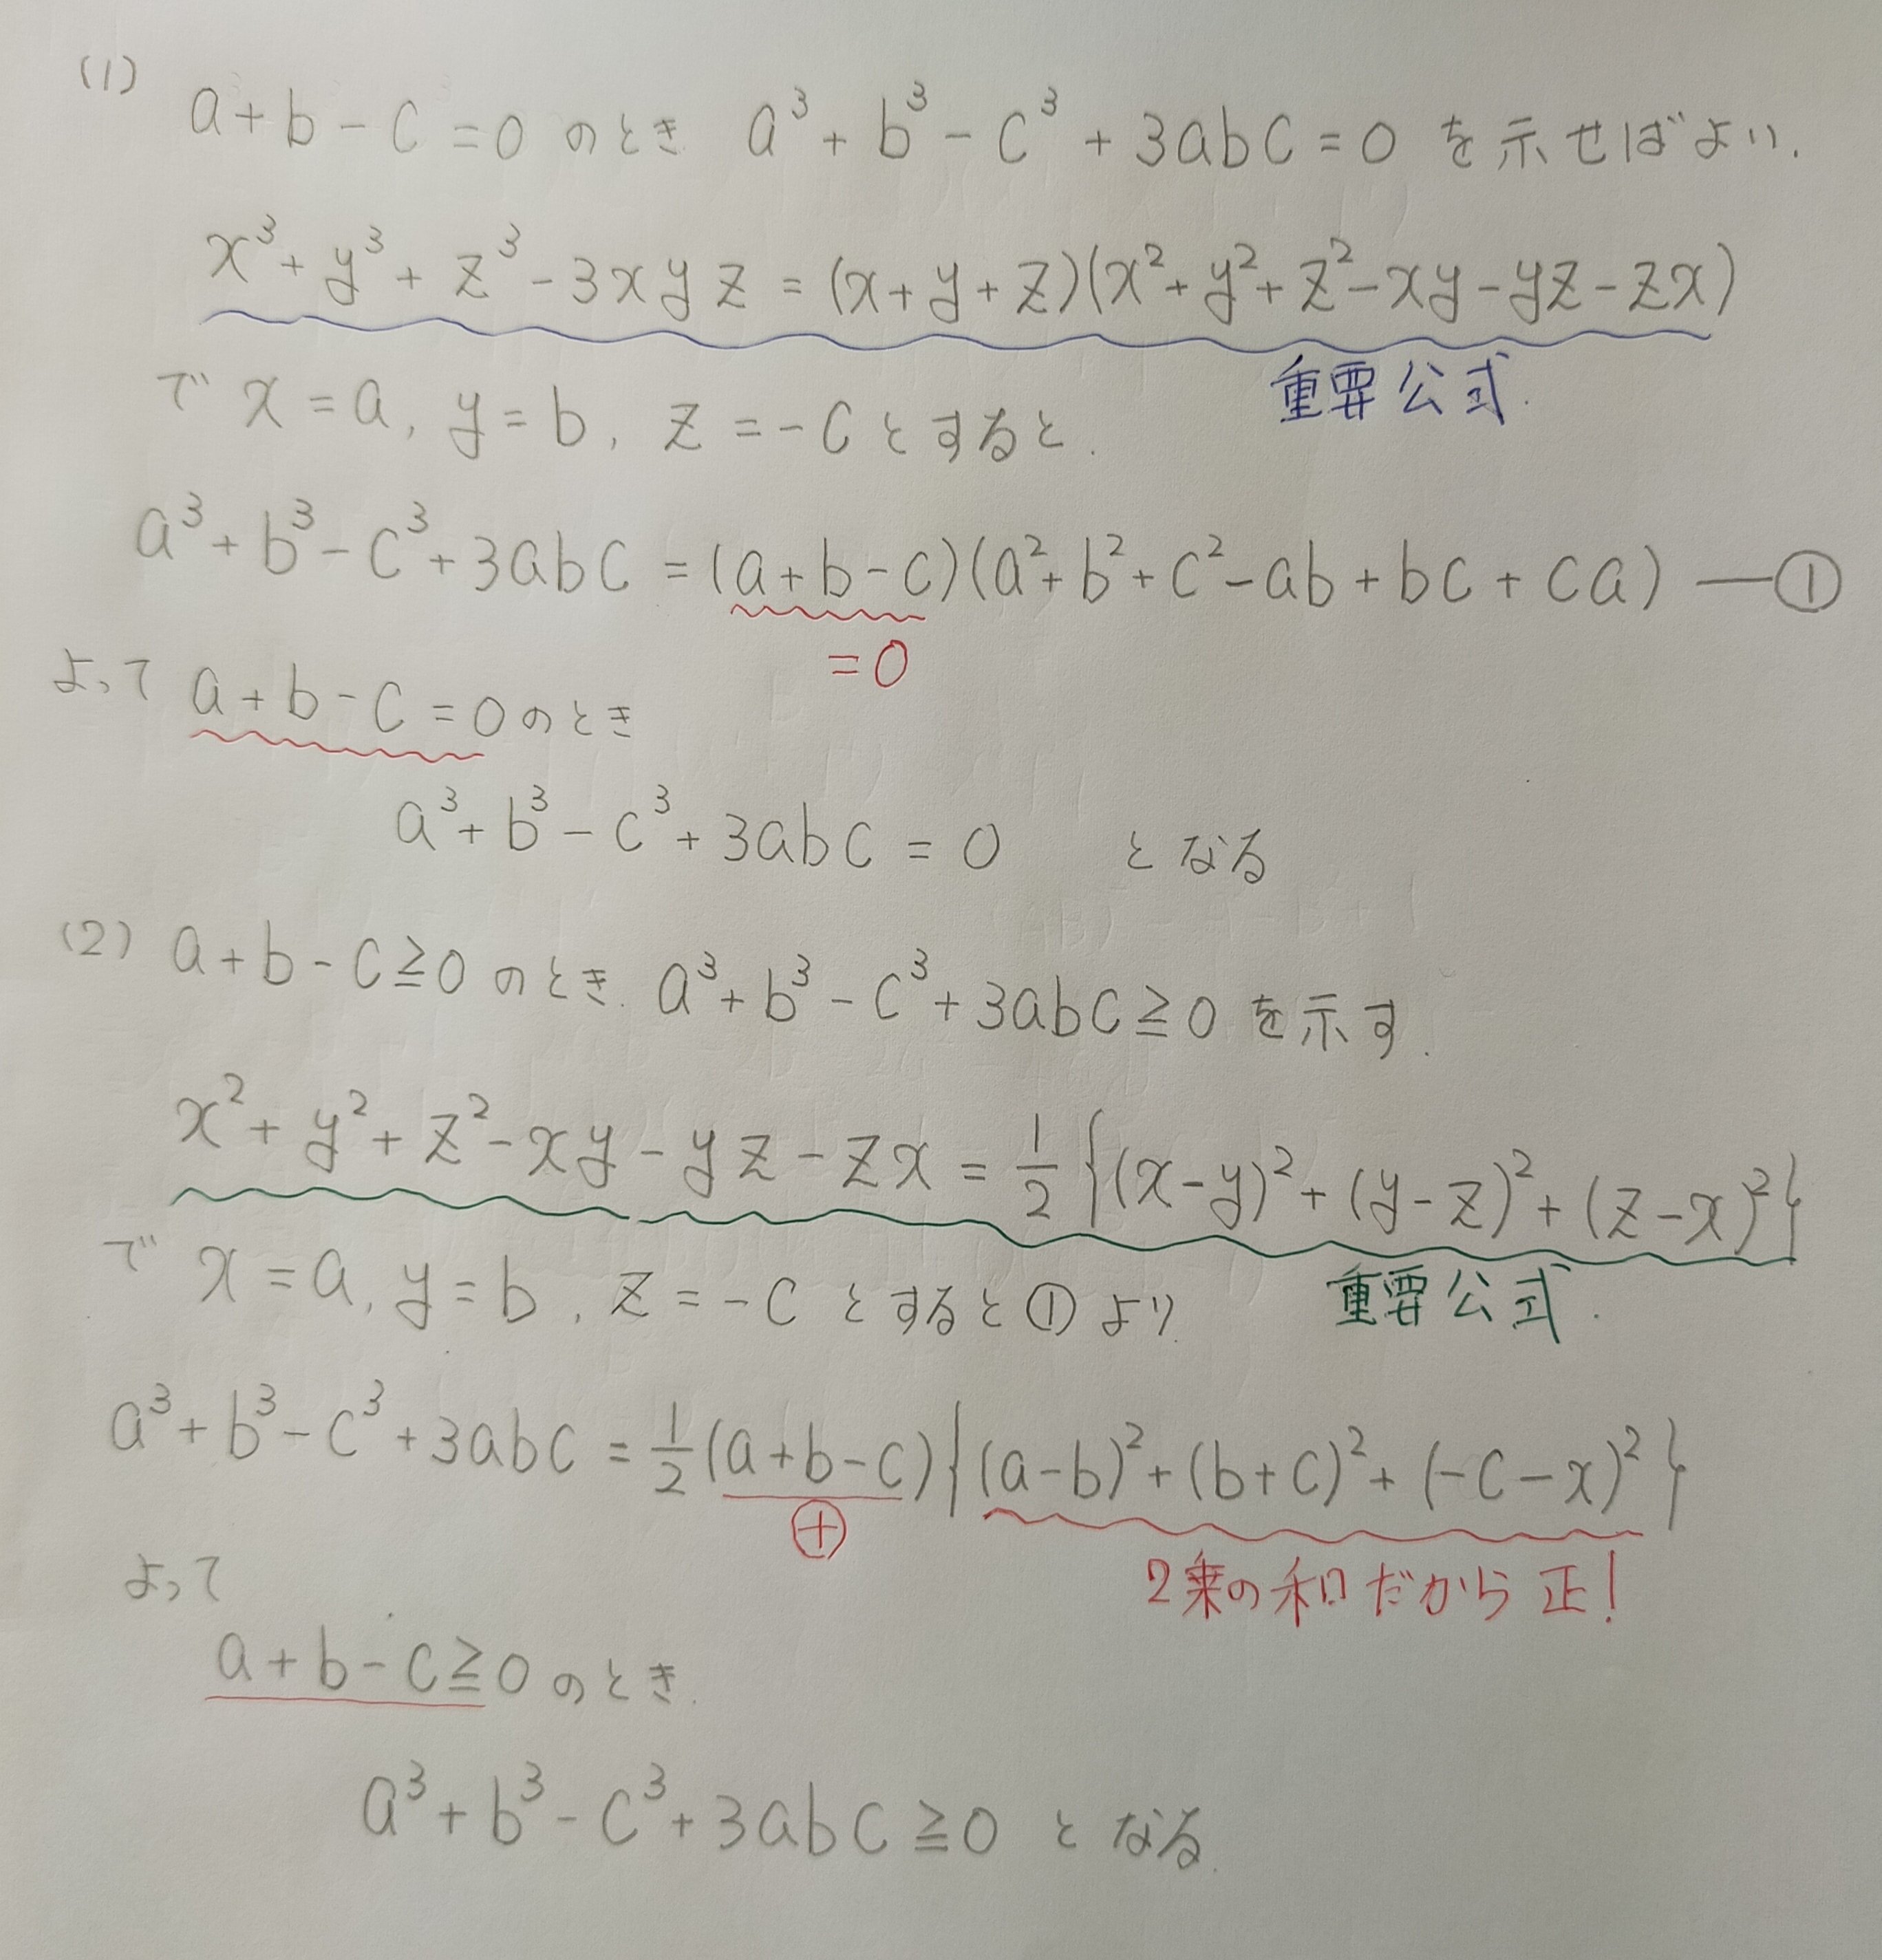 (1) a+b-c=0のとき a³+b³-c³+3abc=0を示せばよい.
x³+y³+z³-3xyz=(x+y+z)(x²+y²+z²-xy-yz-zx)
重要公式.
で x=a, y=b, z=-cとすると.
a³+b³-c³+3abc=(a+b-c)(a²+b²+c²-ab+bc+ca) ―①
=0
よって a+b-c=0のとき
a³+b³-c³+3abc=0 となる
(2) a+b-c≧0のとき. a³+b³-c³+3abc≧0を示す.
x²+y²+z²-xy-yz-zx=1/2{(x-y)²+(y-z)²+(z-x)²}
重要公式.
で x=a, y=b, z=-cとすると①より
a³+b³-c³+3abc=1/2(a+b-c){(a-b)²+(b+c)²+(-c-x)²}
⊕
2乗の和だから正!
よって
a+b-c≧0のとき.
a³+b³-c³+3abc≧0となる.